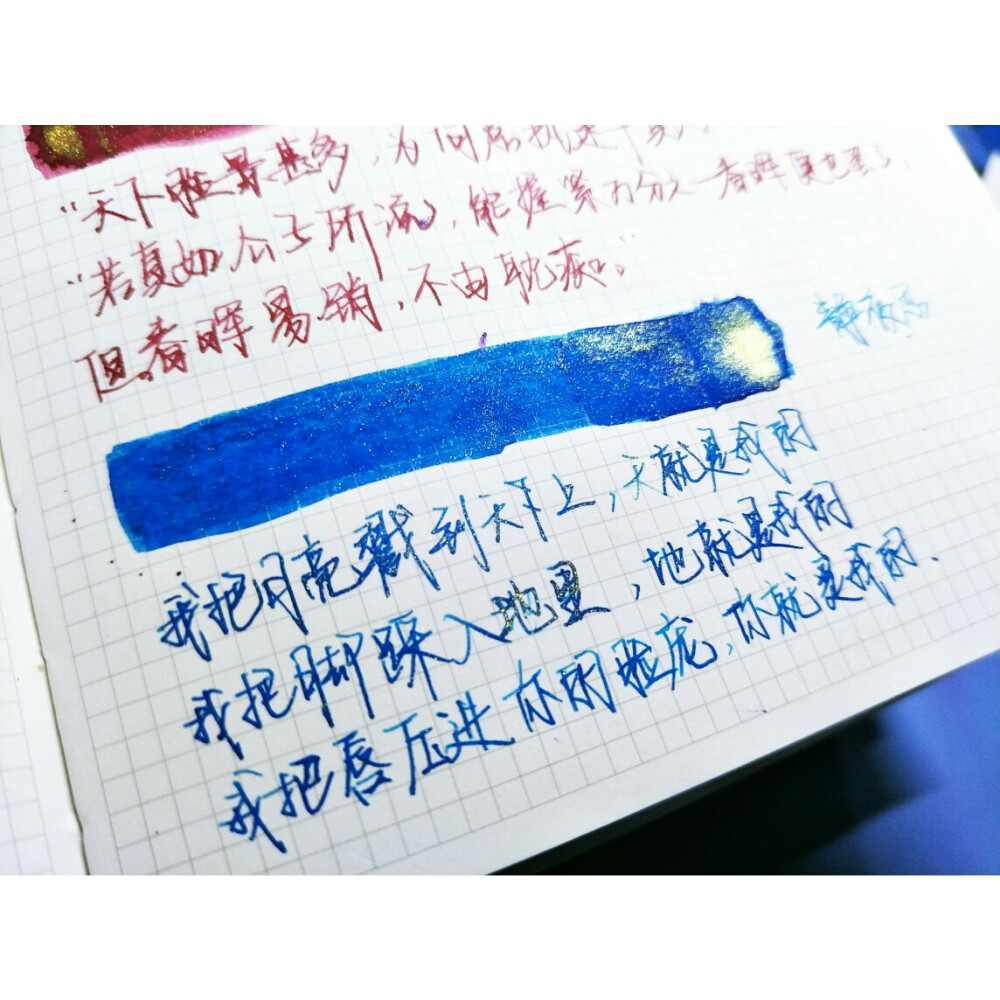 “天下胜景甚多，为何君执是
“若真如公子所流，能握紧万分之一春晖真也罢了，
但春晖易销，不由耽痴。”
我把月亮戳到天下上，天就是我的
我把脚踩入地里，地就是我的
我把唇压进你的脸庞，你就是我的.